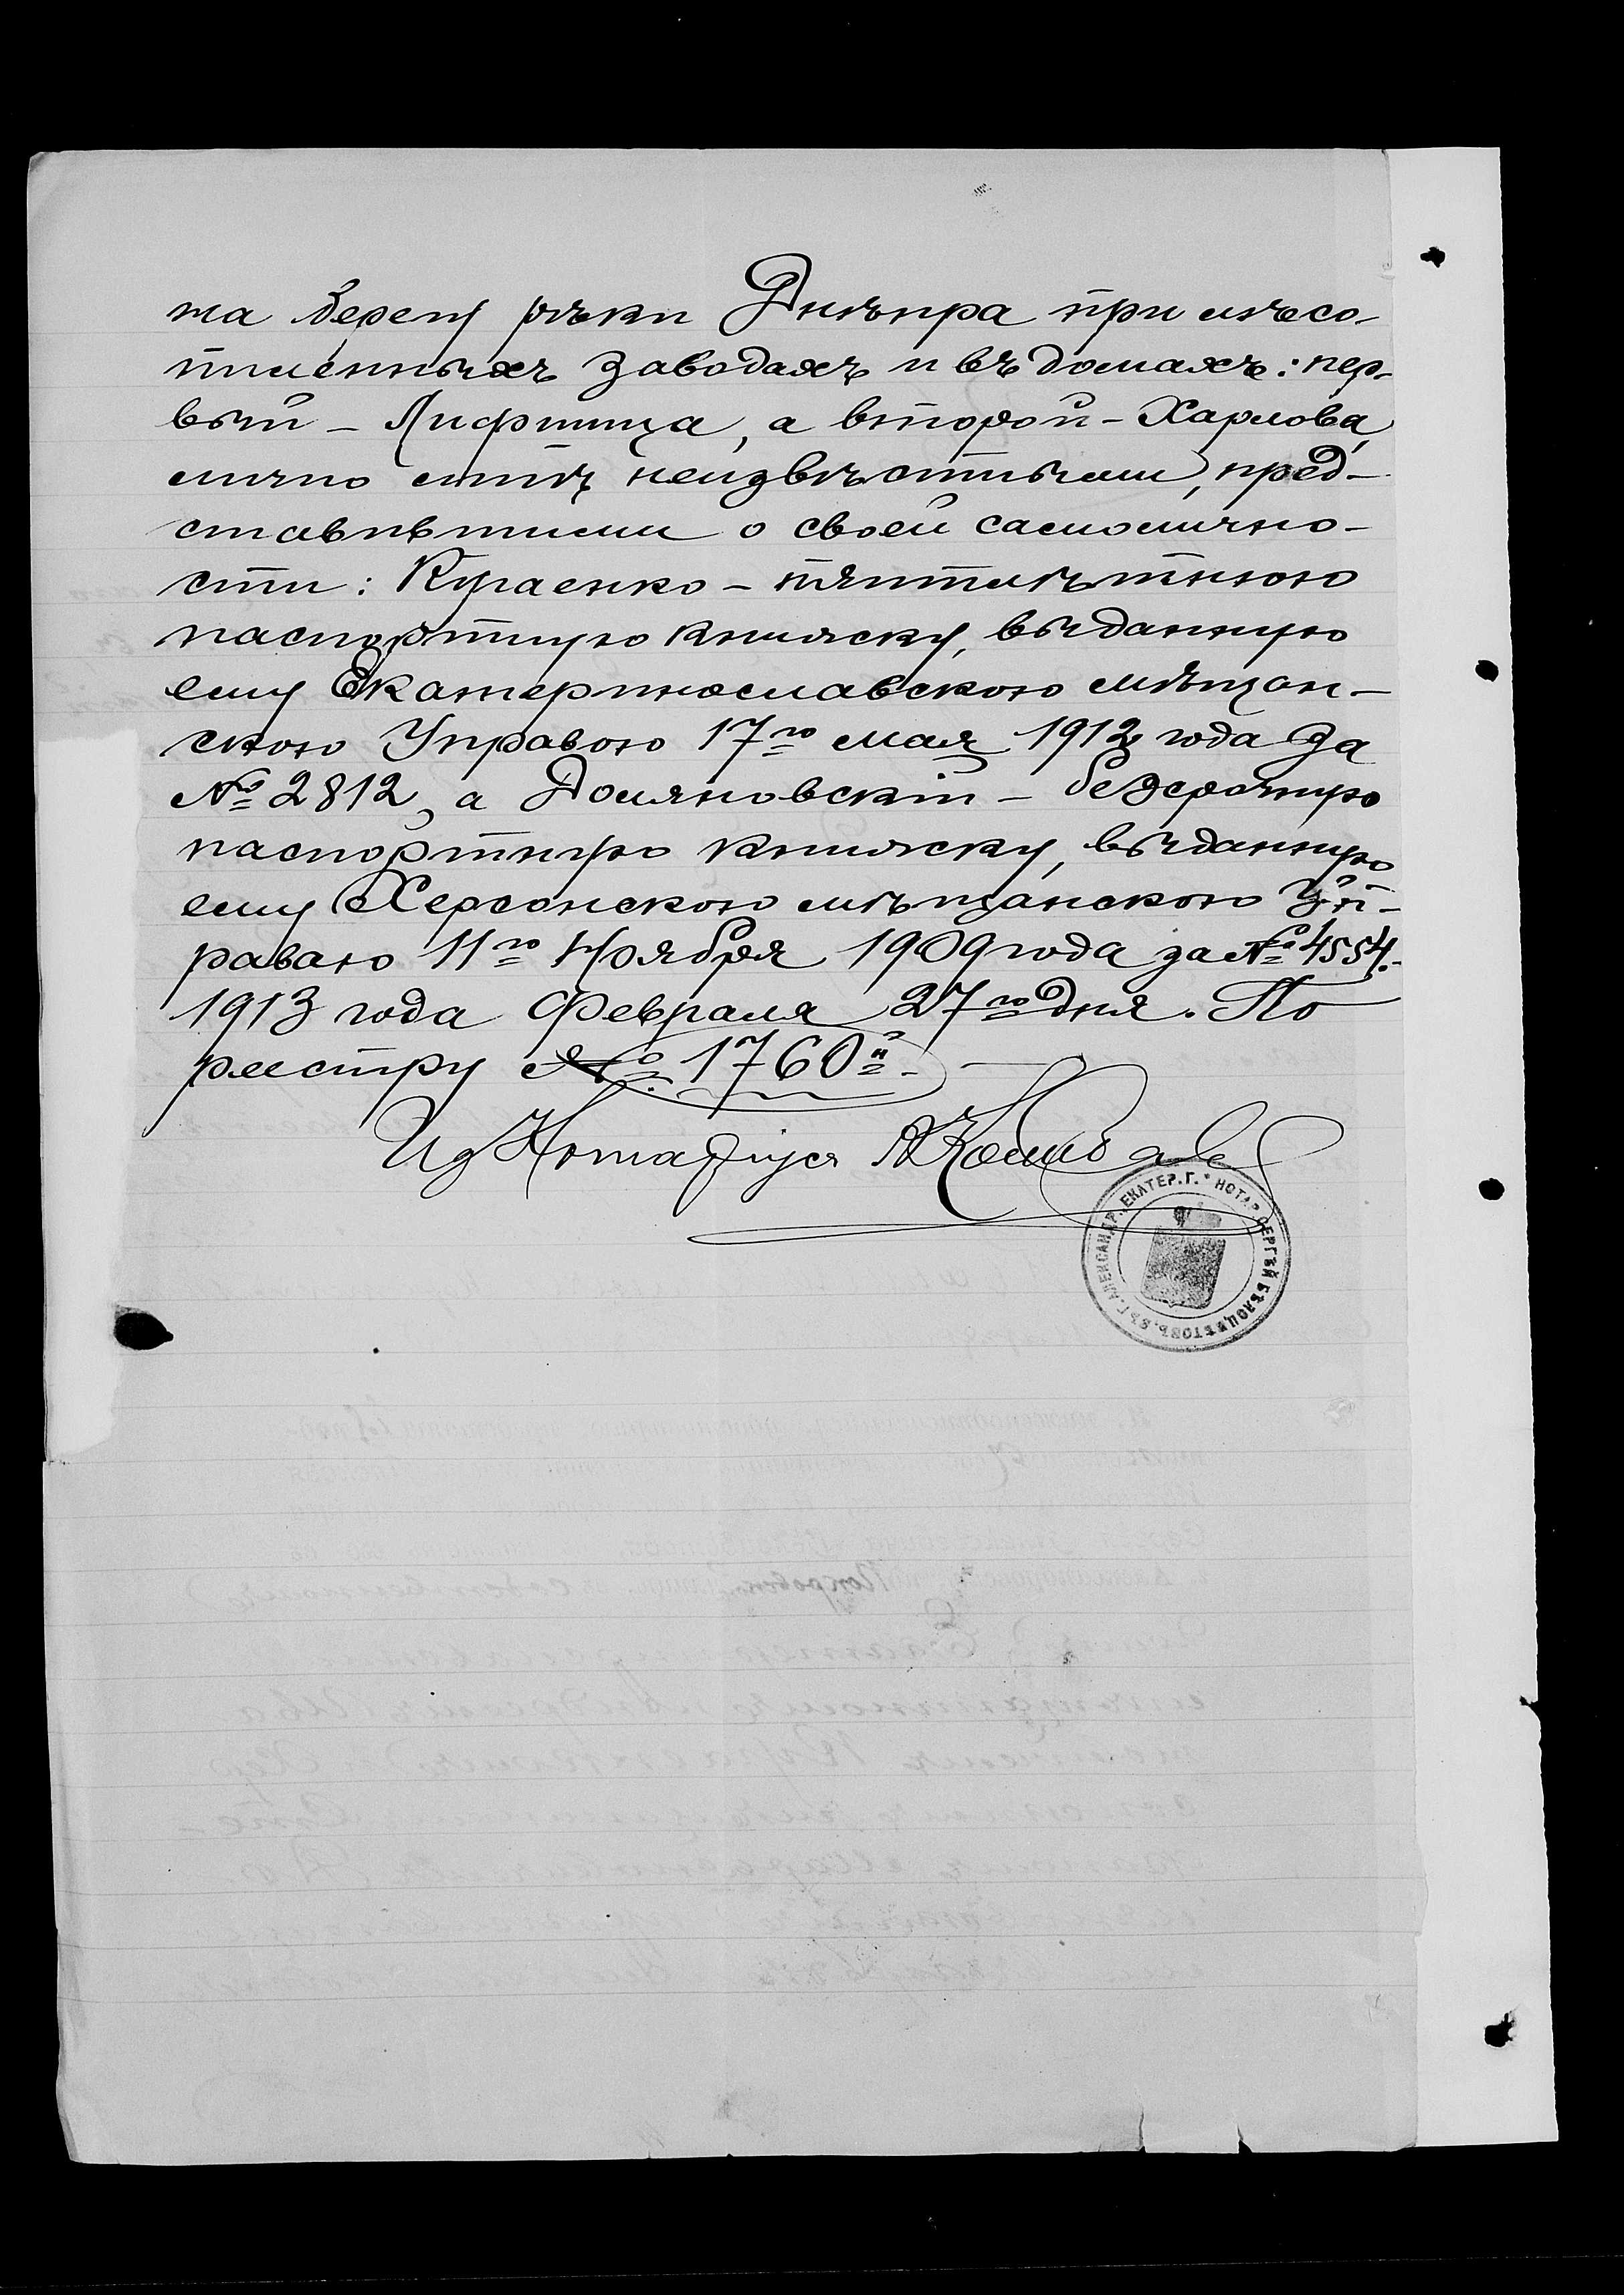 на берегу рѣки Днѣпра при лѣсо-
пиленныхъ заводахъ и въ домахъ: пер-
вый - Лифшица, а второй - Харлова,
лично мнѣ неизвѣстными, пред-
ставившими о своей самолично-
сти: Кугаенко - пятилѣтнюю
паспортную книжку, выданную
ему Екатеринославскою мѣщан-
скою Управою 17го мая 1912 года за
№ 2812, а Домяновскій - безсрочную
паспортную книжку, выданную
ему Херсонскою мѣщанскою Уп-
равою 11го Ноября 1909 года за № 4554.
1913 года Февраля 27го дня. По
реестру № 1760й.-
Нотаріуса
АЛЕКСАНДР. ЕКАТЕР. Г. * НОТАР. СЕРГѢЙ БѢЛОЦВѢТОВЪ. ВЪ Г.